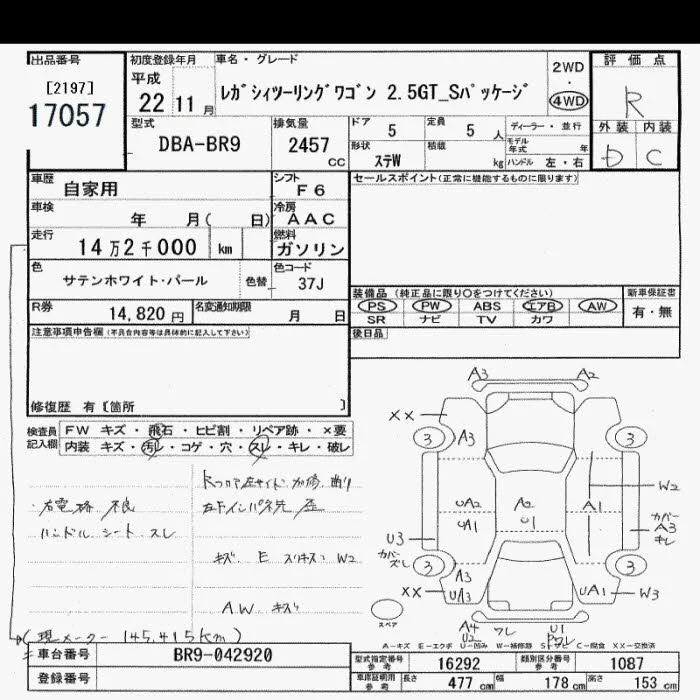 出品番号
[2197]
17057
初度登録年月
平成
22 11月
車名・グレード
ﾚｶﾞｼｨﾂｰﾘﾝｸﾞﾜｺﾞﾝ 2.5GT_Sﾊﾟｯｹｰｼﾞ
2WD
・
4WD
評価点
R
外装 内装
D C
型式
DBA-BR9
排気量
2457
CC
ドア 5
定員 5 人
ディーラー・並行
形状 ｽﾃW
積載 kg
モデル年式 年
ハンドル 左・右
車歴 自家用
シフト F6
セールスポイント(正常に機能するものに限ります)
車検 年 月( 日)
冷房 AAC
走行 14万2千000 km
燃料 ガソリン
色 サテンホワイト・パール
色替
色コード 37J
装備品 (純正品に限り○をつけてください)
新車保証書
PS PW ABS エアB AW
有・無
SR ナビ TV カワ
R券 14,820円
名変通知期限 月 日
後日品
注意事項申告欄(不具合内容等は具体的に記入して下さい)
修復歴 有〔箇所 〕
検査員記入欄
FW キズ・飛石・ヒビ割・リペア跡・×要
内装 キズ・汚レ・コゲ・穴・スレ・キレ・破レ
ハンドル シート スレ
キズ E W2
A.W. キズ
(現メーター 145,415km)
A3 A2
XX
3 A3 3
W2
UA2 A2 A1
UA1 U1
カバー
A3
キレ
U3
カバー
ズレ
3 3
A3
XX UA3 UA1 W3
スペア
A4 ワレ U1
U2 ワレ
A-キズ E-エクボ U-凹み W-補修跡 S-サビ C-腐食 XX-交換済
車台番号 BR9-042920
登録番号
型式指定番号 参考 16292
類別区分番号 参考 1087
車庫証明用 参考 長さ 477 cm 幅 178 cm 高さ 153 cm